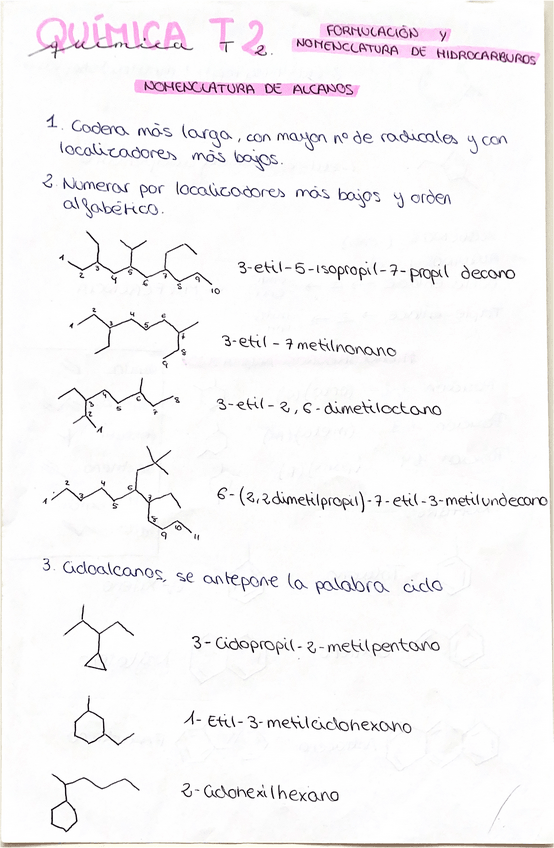 QUÍMICA T2
química T 2.
FORMULACIÓN Y
NOMENCLATURA DE HIDROCARBUROS
NOMENCLATURA DE ALCANOS
1. Cadena más larga, con mayor nº de radicales y con
localizadores más bajos.
2. Numerar por localizadores más bajos y orden
alfabético.
1 2 3 4 5 6 7 8 9 10
3-etil-5-isopropil-7-propil decano
1 2 3 4 5 6 7 8 9
3-etil-7metilnonano
1 2 3 4 5 6 7 8
3-etil-2,6-dimetiloctano
1 2 3 4 5 6 7 8 9 10 11
6-(2,2dimetilpropil)-7-etil-3-metilundecano
3. Cicloalcanos, se antepone la palabra ciclo
3-Ciclopropil-2-metilpentano
1-Etil-3-metilciclohexano
2-Ciclohexilhexano